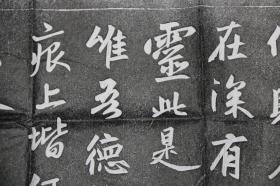 在深有
靈此是
唯吾德
痕上堦